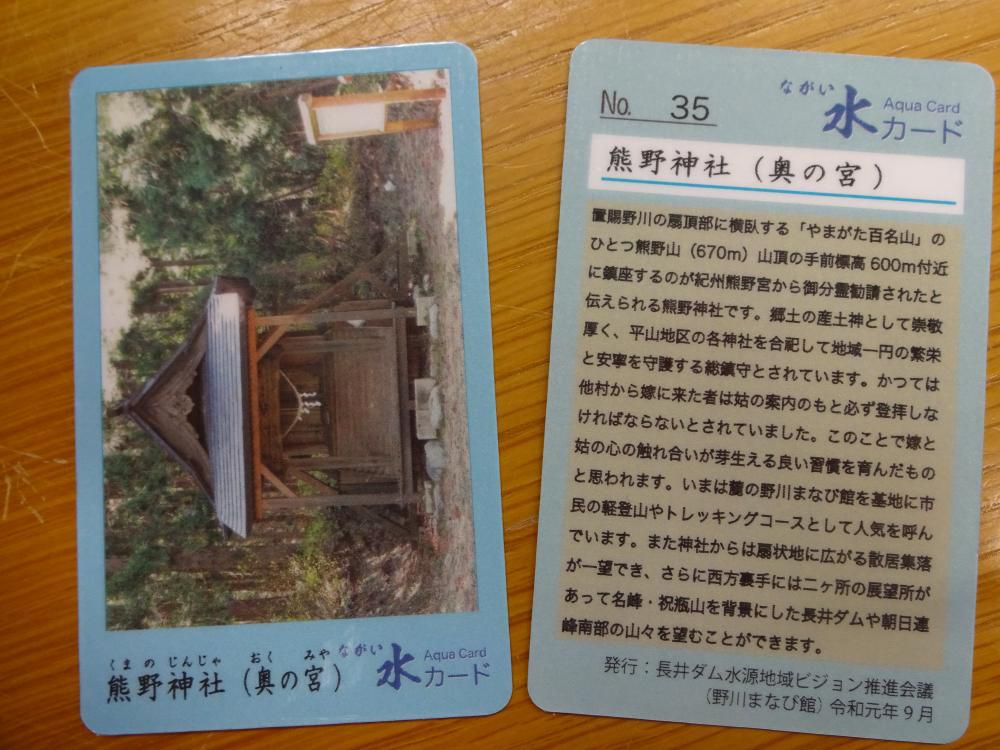 くまの じんじゃ おく みや
熊野神社(奥の宮)
ながい
水 Aqua Card
カード
No. 35
ながい
水 Aqua Card
カード
熊野神社(奥の宮)
置賜野川の扇頂部に横臥する「やまがた百名山」の
ひとつ熊野山(670m)山頂の手前標高600m付近
に鎮座するのが紀州熊野宮から御分霊勧請されたと
伝えられる熊野神社です。郷土の産土神として崇敬
厚く、平山地区の各神社を合祀して地域一円の繁栄
と安寧を守護する総鎮守とされています。かつては
他村から嫁に来た者は姑の案内のもと必ず登拝しな
ければならないとされていました。このことで嫁と
姑の心の触れ合いが芽生える良い習慣を育んだもの
と思われます。いまは麓の野川まなび館を基地に市
民の軽登山やトレッキングコースとして人気を呼ん
でいます。また神社からは扇状地に広がる散居集落
が一望でき、さらに西方裏手には二ヶ所の展望所が
あって名峰・祝瓶山を背景にした長井ダムや朝日連
峰南部の山々を望むことができます。
発行:長井ダム水源地域ビジョン推進会議
(野川まなび館)令和元年9月